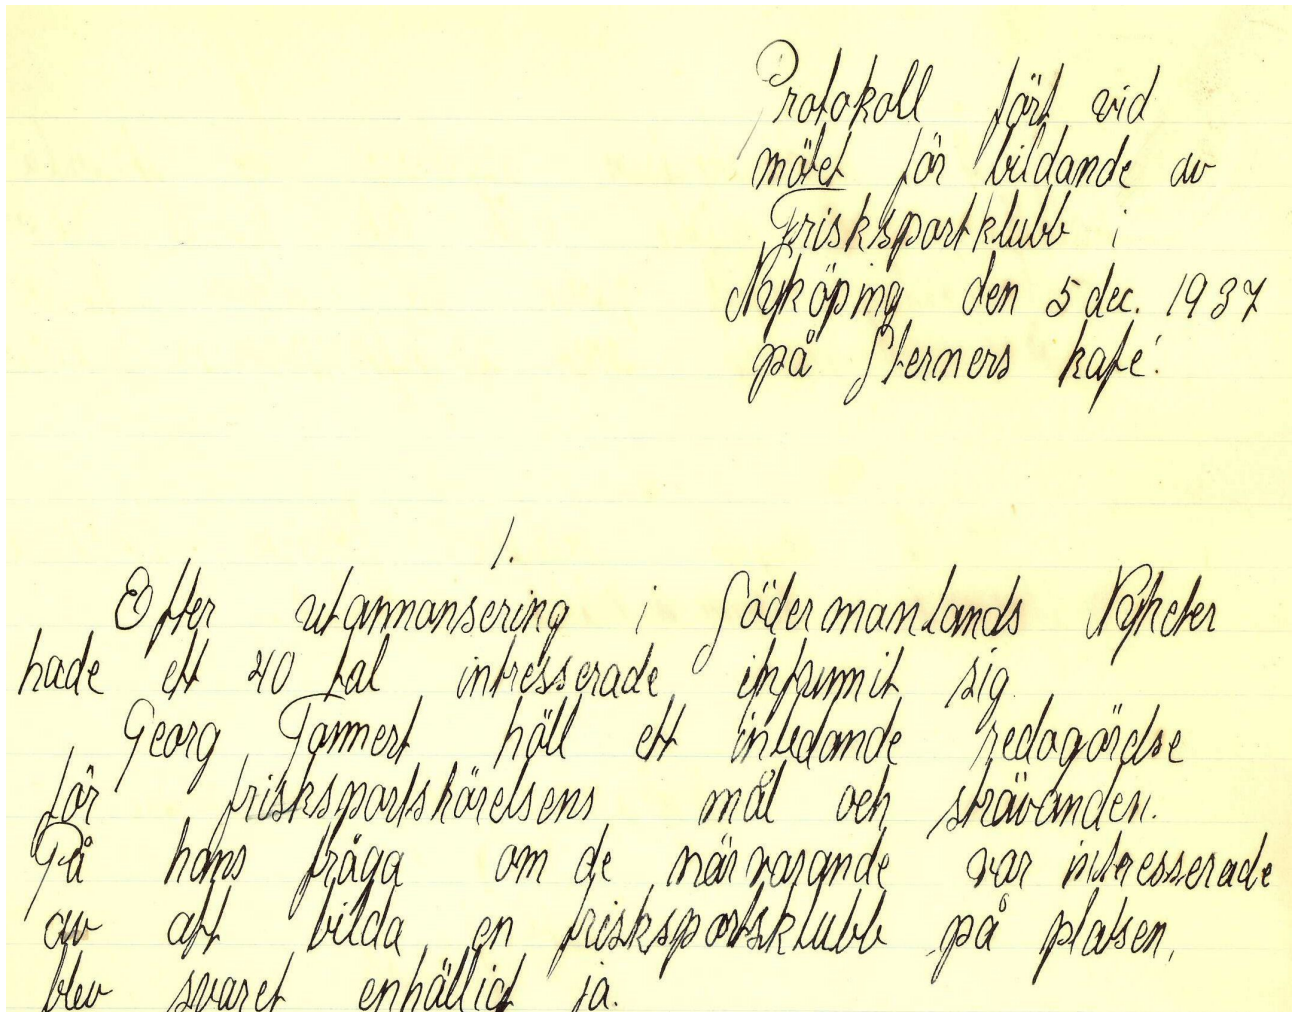 Protokoll fört vid
mötet för bildande av
Frisksportklubb i
Nyköping den 5 dec. 1937
på Sterners kafé.
1.
Efter utannansering i Södermanlands Nyheter
hade ett 40 tal intresserade infunnit sig.
Georg Tammert höll ett inledande redogörelse
för frisksportsrörelsens mål och strävanden.
På hans fråga om de närvarande var intresserade
av att bilda en frisksportsklubb på platsen,
blev svaret enhälligt ja.